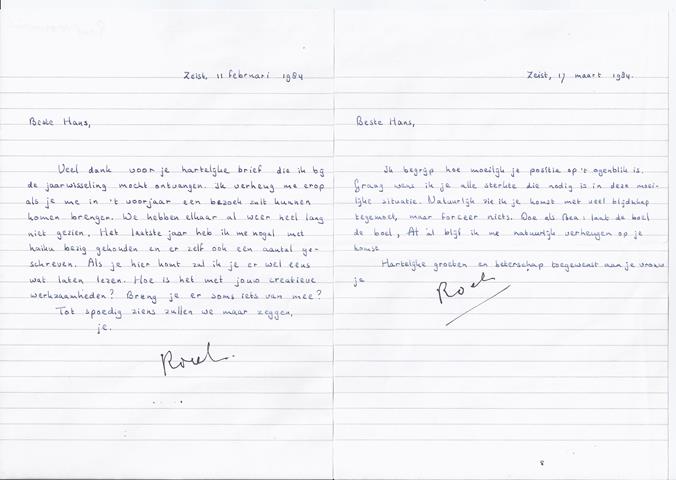 Zeist, 11 februari 1984
Beste Hans,
Veel dank voor je hartelijke brief die ik bij
de jaarwisseling mocht ontvangen. Ik verheug me erop
als je me in 't voorjaar een bezoek zult kunnen
komen brengen. We hebben elkaar al weer heel lang
niet gezien. Het laatste jaar heb ik me nogal met
haiku bezig gehouden en er zelf ook een aantal ge-
schreven. Als je hier komt zal ik je er wel eens
wat laten lezen. Hoe is het met jouw creatieve
werkzaamheden? Breng je er soms iets van mee?
Tot spoedig ziens zullen we maar zeggen,
je.
Roel.
Zeist, 17 maart 1984.
Beste Hans,
Ik begrijp hoe moeilijk je positie op 't ogenblik is.
Graag wens ik je alle sterkte die nodig is in deze moei-
lijke situatie. Natuurlijk zie ik je komst met veel blijdschap
tegemoet, maar forceer niets. Doe als Bea: laat de boel
de boel, Al blijf ik me natuurlijk verheugen op je
komst
Hartelijke groeten en beterschap toegewenst aan je vrouw
je
Roel
8